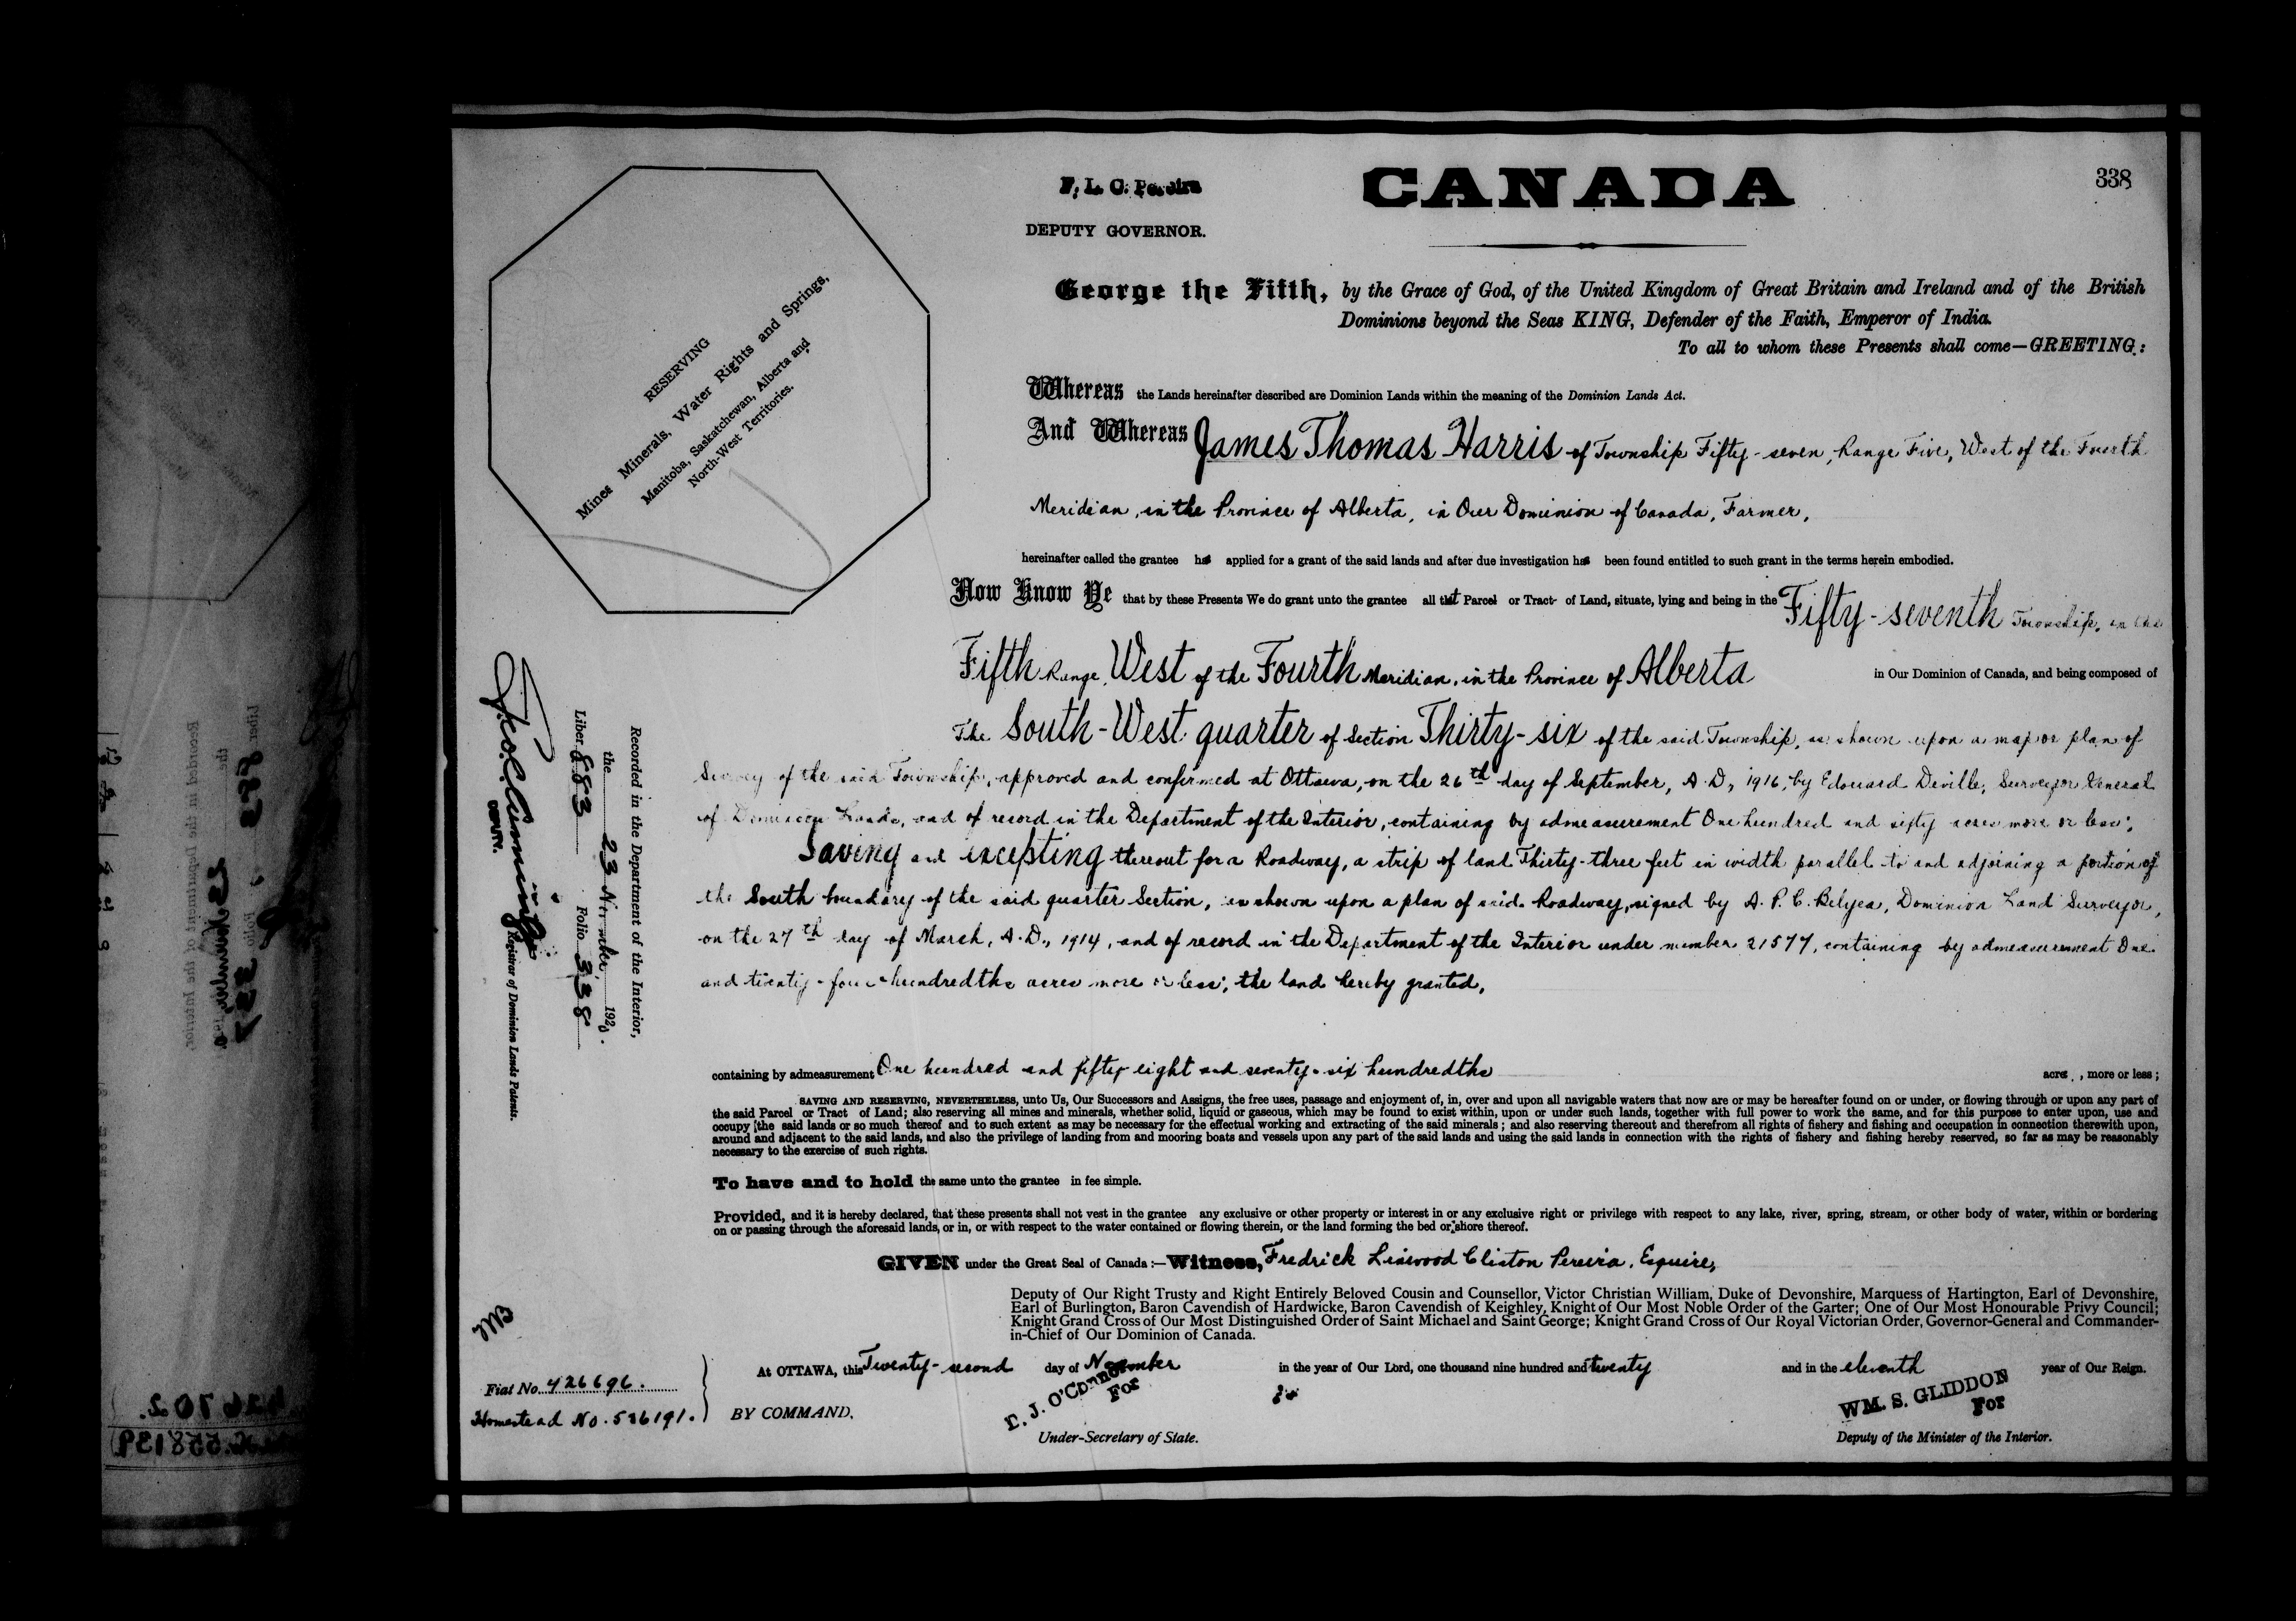 338
CANADA
F. L. C. Pereira
DEPUTY GOVERNOR.
RESERVING
Mines Minerals, Water Rights and Springs,
Manitoba, Saskatchewan, Alberta and
North-West Territories.
George the Fifth, by the Grace of God, of the United Kingdom of Great Britain and Ireland and of the British
Dominions beyond the Seas KING, Defender of the Faith, Emperor of India.
To all to whom these Presents shall come—GREETING:
Whereas the Lands hereinafter described are Dominion Lands within the meaning of the Dominion Lands Act.
And Whereas James Thomas Harris of Township Fifty-seven, Range Five, West of the Fourth
Meridian, in the Province of Alberta, in Our Dominion of Canada, Farmer,
hereinafter called the grantee has applied for a grant of the said lands and after due investigation has been found entitled to such grant in the terms herein embodied.
Now Know Ye that by these Presents We do grant unto the grantee all that Parcel or Tract of Land, situate, lying and being in the Fifty-seventh Township, in the
Fifth Range, West of the Fourth Meridian, in the Province of Alberta in Our Dominion of Canada, and being composed of
The South-West quarter of Section Thirty-six of the said Township, as shown upon a map or plan of
Survey of the said Township, approved and confirmed at Ottawa, on the 26th day of September, A.D., 1916, by Edouard Deville, Surveyor General
of Dominion Lands, and of record in the Department of the Interior, containing by admeasurement One hundred and sixty acres more or less;
Saving and excepting thereout for a Roadway, a strip of land Thirty-three feet in width parallel to and adjoining a portion of
the South boundary of the said quarter Section, as shown upon a plan of said Roadway, signed by A. P. C. Belyea, Dominion Land Surveyor,
on the 27th day of March, A.D., 1914, and of record in the Department of the Interior under number 21577, containing by admeasurement One
and twenty-four hundredths acres more or less; the land hereby granted,
containing by admeasurement One hundred and fifty-eight and seventy-six hundredths acres, more or less;
SAVING AND RESERVING, NEVERTHELESS, unto Us, Our Successors and Assigns, the free uses, passage and enjoyment of, in, over and upon all navigable waters that now are or may be hereafter found on or under, or flowing through or upon any part of
the said Parcel or Tract of Land; also reserving all mines and minerals, whether solid, liquid or gaseous, which may be found to exist within, upon or under such lands, together with full power to work the same, and for this purpose to enter upon, use and
occupy the said lands or so much thereof and to such extent as may be necessary for the effectual working and extracting of the said minerals; and also reserving thereout and therefrom all rights of fishery and fishing and occupation in connection therewith upon,
around and adjacent to the said lands, and also the privilege of landing from and mooring boats and vessels upon any part of the said lands and using the said lands in connection with the rights of fishery and fishing hereby reserved, so far as may be reasonably
necessary to the exercise of such rights.
To have and to hold the same unto the grantee in fee simple.
Provided, and it is hereby declared, that these presents shall not vest in the grantee any exclusive or other property or interest in or any exclusive right or privilege with respect to any lake, river, spring, stream, or other body of water, within or bordering
on or passing through the aforesaid lands, or in, or with respect to the water contained or flowing therein, or the land forming the bed or shore thereof.
GIVEN under the Great Seal of Canada:—Witness, Fredrick Linwood Clinton Pereira, Esquire,
Deputy of Our Right Trusty and Right Entirely Beloved Cousin and Counsellor, Victor Christian William, Duke of Devonshire, Marquess of Hartington, Earl of Devonshire,
Earl of Burlington, Baron Cavendish of Hardwicke, Baron Cavendish of Keighley, Knight of Our Most Noble Order of the Garter; One of Our Most Honourable Privy Council;
Knight Grand Cross of Our Most Distinguished Order of Saint Michael and Saint George; Knight Grand Cross of Our Royal Victorian Order, Governor-General and Commander-
in-Chief of Our Dominion of Canada.
At OTTAWA, this Twenty-second day of November in the year of Our Lord, one thousand nine hundred and twenty and in the eleventh year of Our Reign.
BY COMMAND,
E. J. O'Connor
For
Under-Secretary of State.
WM. S. GLIDDON
For
Deputy of the Minister of the Interior.
Fiat No. 426696.
Homestead No. 536191.
Recorded in the Department of the Interior,
the 23 November, 1920.
Liber 883 Folio 338
DEPUTY. Registrar of Dominion Lands Patents.